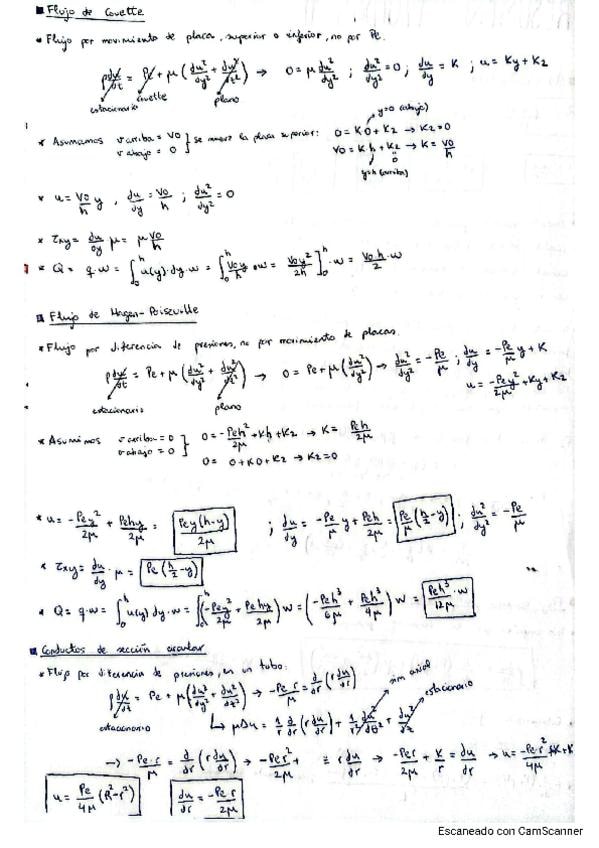 ■ Flujo de Couette
* Flujo por movimiento de placas, superior o inferior, no por Pe.
ρ du/dt = Pe + μ (du²/dy² + du²/dz²) → 0 = μ du²/dy² ; du²/dy² = 0 ; du/dy = K ; u = Ky + K2
estacionario couette plano
y=0 (abajo)
* Asumamos v arriba = V0 } se mueve la placa superior: 0 = K·0 + K2 → K2 = 0
v abajo = 0 V0 = K h + K2 → K = V0/h
0
y=h (arriba)
* u = V0/h y , du/dy = V0/h ; du²/dy² = 0
* τxy = du/dy μ = μ V0/h
* Q = q·w = ∫₀ʰ u(y)·dy·w = ∫₀ʰ V0y/h ·w = V0y²/2h ]₀ʰ · w = V0h/2 · w
■ Flujo de Hagen-Poiseuille
* Flujo por diferencia de presiones, no por movimiento de placas.
ρ du/dt = Pe + μ (du²/dy² + du²/dz²) → 0 = Pe + μ (du²/dy²) → du²/dy² = -Pe/μ ; du/dy = -Pe/μ y + K
estacionario plano u = -Pey²/2μ + Ky + K2
* Asumimos v arriba = 0 } 0 = -Peh²/2μ + Kh + K2 → K = Peh/2μ
v abajo = 0 0 = 0 + K0 + K2 → K2 = 0
* u = -Pey²/2μ + Pehy/2μ = Pey(h-y)/2μ ; du/dy = -Pe/μ y + Peh/2μ = Pe/μ (h/2 - y) ; du²/dy² = -Pe/μ
* τxy = du/dy · μ = Pe(h/2 - y)
* Q = q·w = ∫₀ʰ u(y) dy·w = ∫₀ʰ(-Pey²/2μ + Pehy/2μ) w = (-Peh³/6μ + Peh³/4μ) w = Peh³/12μ · w
■ Conductos de sección circular
* Flujo por diferencia de presiones, en un tubo:
ρ du/dt = Pe + μ (du²/dy² + du²/dz²) → -Pe r/μ = d/dr (r du/dr) sim axial
estacionario ↳ μΔu = 1/r d/dr (r du/dr) + 1/r² du²/dθ² + du²/dz² estacionario
→ -Pe·r/μ = d/dr (r du/dr) → -Per²/2μ + = r du/dr → -Per/2μ + K/r = du/dr → u = -Pe·r²/4μ +K+K
u = Pe/4μ (R²-r²) du/dr = -Pe r/2μ
Escaneado con CamScanner